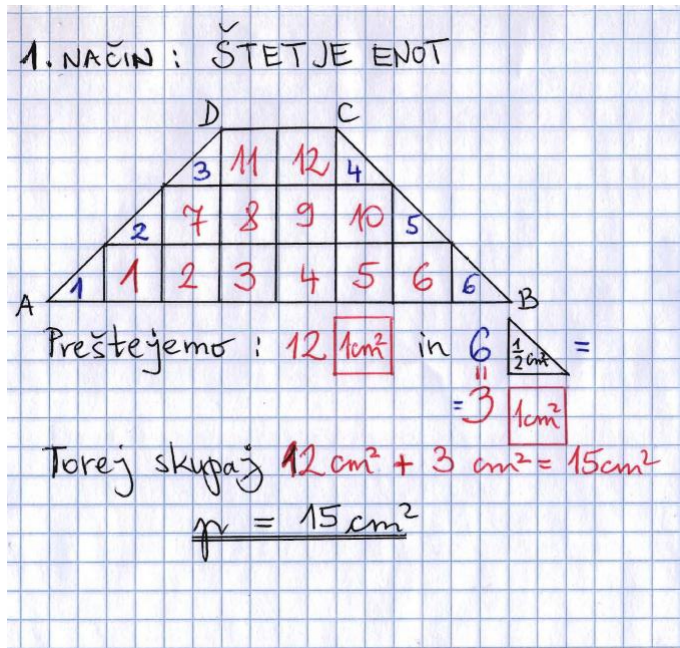 1. NAČIN : ŠTETJE ENOT
D C
3 11 12 4
2 7 8 9 10 5
A 1 1 2 3 4 5 6 6 B
Preštejemo : 12 1cm² in 6 ½cm² =
= 3 1cm²
Torej skupaj 12 cm² + 3 cm² = 15cm²
p = 15 cm²